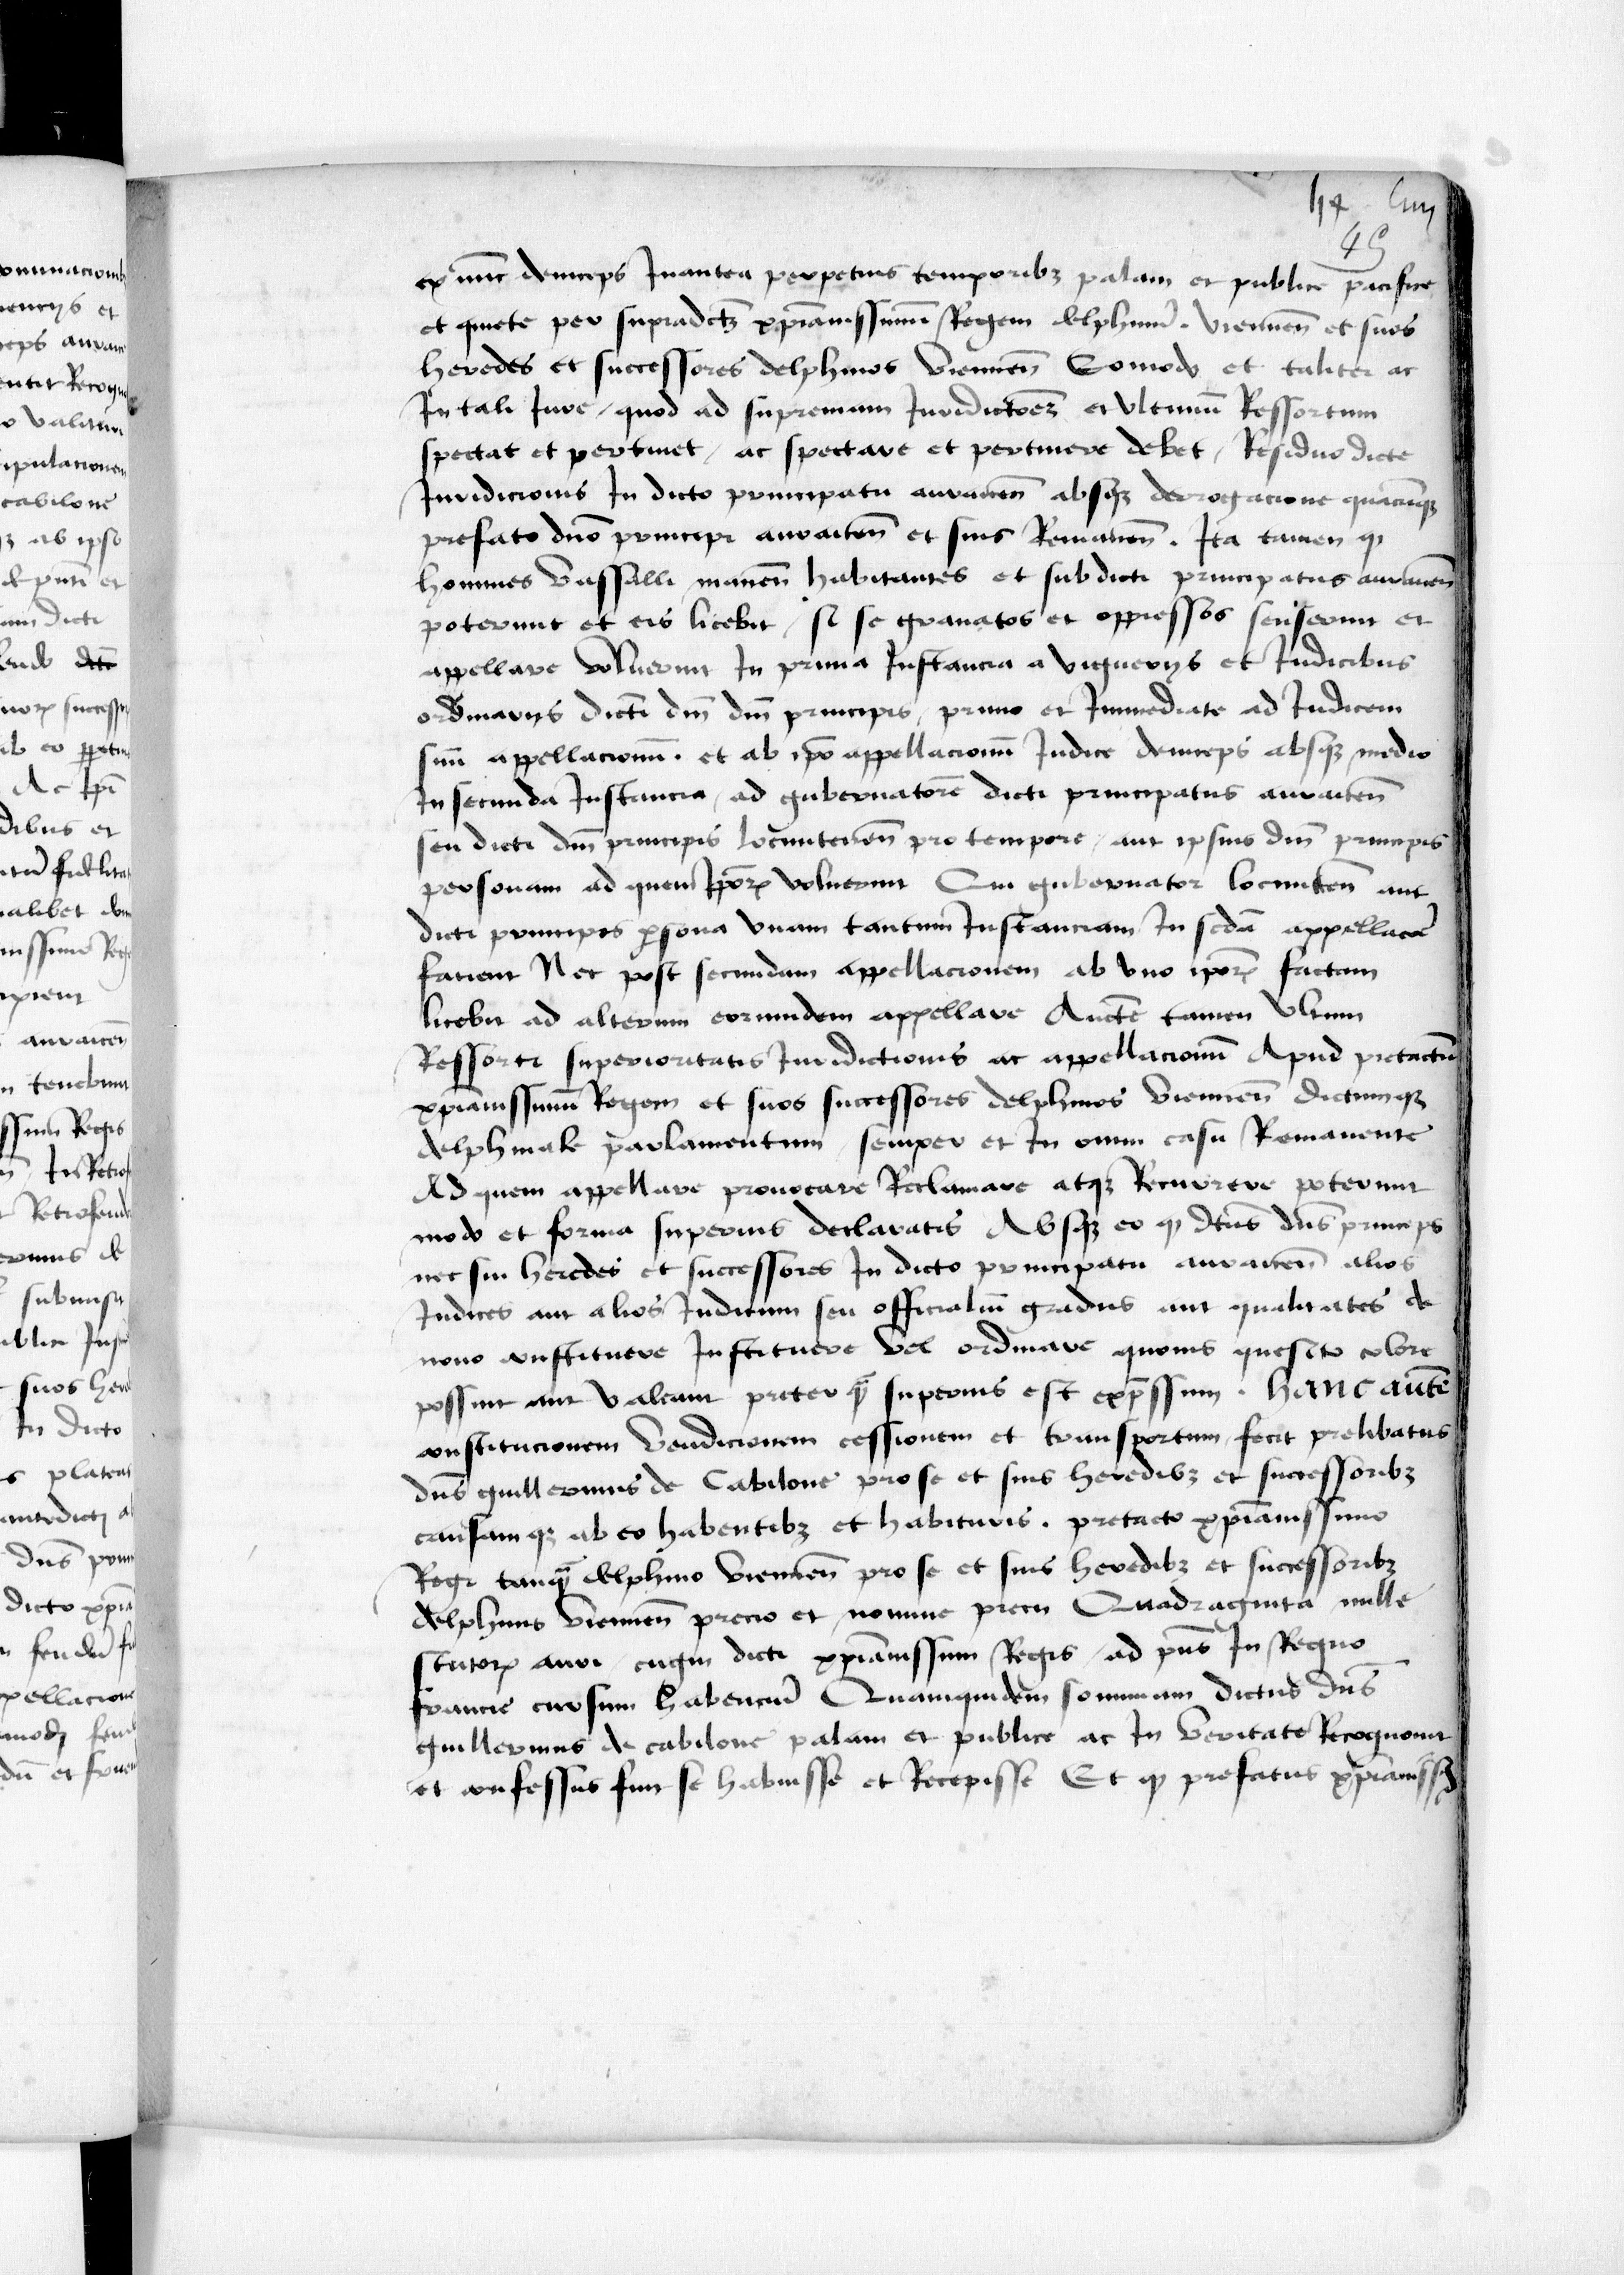 45
ex nunc deinceps Inantea perpetuis temporibꝫ palam et publice pacifice
et quiete per supradictꝫ xp̄ianissimū Regem delphinū . Viennen̄ et suos
heredes et successores delphinos Viennen̄ Eomodo et taliter ac
In tali Iure / quod ad supremam Iuridictōeꝫ et vltimū Ressortum
spectat et pertinet / ac spectare et pertinere debet / Residuo dicte
Iuridicionis In dicto principatu auraicen̄ absqꝫ derrogacione quacūqꝫ
prefato dn̄o principi auraicen̄ et suis Remanen̄ . Ita tamen ꝙ
homines Vassalli manen̄ habitantes et subdicti principatus auraicen̄
poterunt et eis licebit / si se grauatos et oppressos senserint et
appellare voluerint In prima Instancia a vigueriis et Iudicibus
ordinariis dicti dn̄i dn̄i principis / primo et Immediate ad Iudicem
suū appellacionū . et ab ip̄o appellacionū Iudice deinceps absqꝫ medio
In secunda Instancia / ad gubernatorē dicti principatus auraicen̄
seu dicti dn̄i principis locumtenen̄ pro tempore / aut ipsius dn̄i principis
personam ad quem Ip̄oꝝ voluerint Qui gubernator locumten̄ aut
dicti principis ꝑsona vnam tantum Instanciam In secdā appellacōe
facient Nec post secundam appellacionem ab vno ip̄oꝝ factam
licebit ad alterum eorumdem appellare Aucte tamen vltimi
Ressorti superioritatis Iuridictionis ac appellacionū Apud pretactū
xp̄ianissimū Regem et suos successores delphinos Viennen̄ dictumqꝫ
delphinale parlamentum / semper et In omni casu Remanente
Ad quem appellare prouocare Reclamare atqꝫ Recurrere poterunt
modo et forma superius declaratis Absqꝫ eo ꝙ dictus dn̄s princeps
nec sui heredes et successores In dicto principatu auraicen̄ alios
Iudices aut alios Iudicum seu officialiū gradus aut qualitates de
nouo constituere Instituere vel ordinare quouis quesito colore
possint aut valeant preter ꝙ̄ superius est exp̄ssum . hanc aūtē
constitucionem Vendicionem cessionem et transportum fecit prelibatus
dn̄s guillermus de Cabilone pro se et suis heredibꝫ et successoribꝫ
causamqꝫ ab eo habentibꝫ et habituris . pretacto xp̄ianissimo
Regi tanqꝫ̄ delphino Viennen̄ pro se et suis heredibꝫ et successoribꝫ
delphinis Viennen̄ precio et nomine precii Quadraginta mille
scutoꝝ auri / cugni dicti xp̄ianissimi Regis / ad pn̄s In Regno
francie cursum habenciū Quamquidem sommam dictus dn̄s
guillermus de cabilone palam et publice ac In veritate Recognouit
et confessus fuit se habuisse et Recepisse Et ꝙ prefatus xp̄ianiss̄